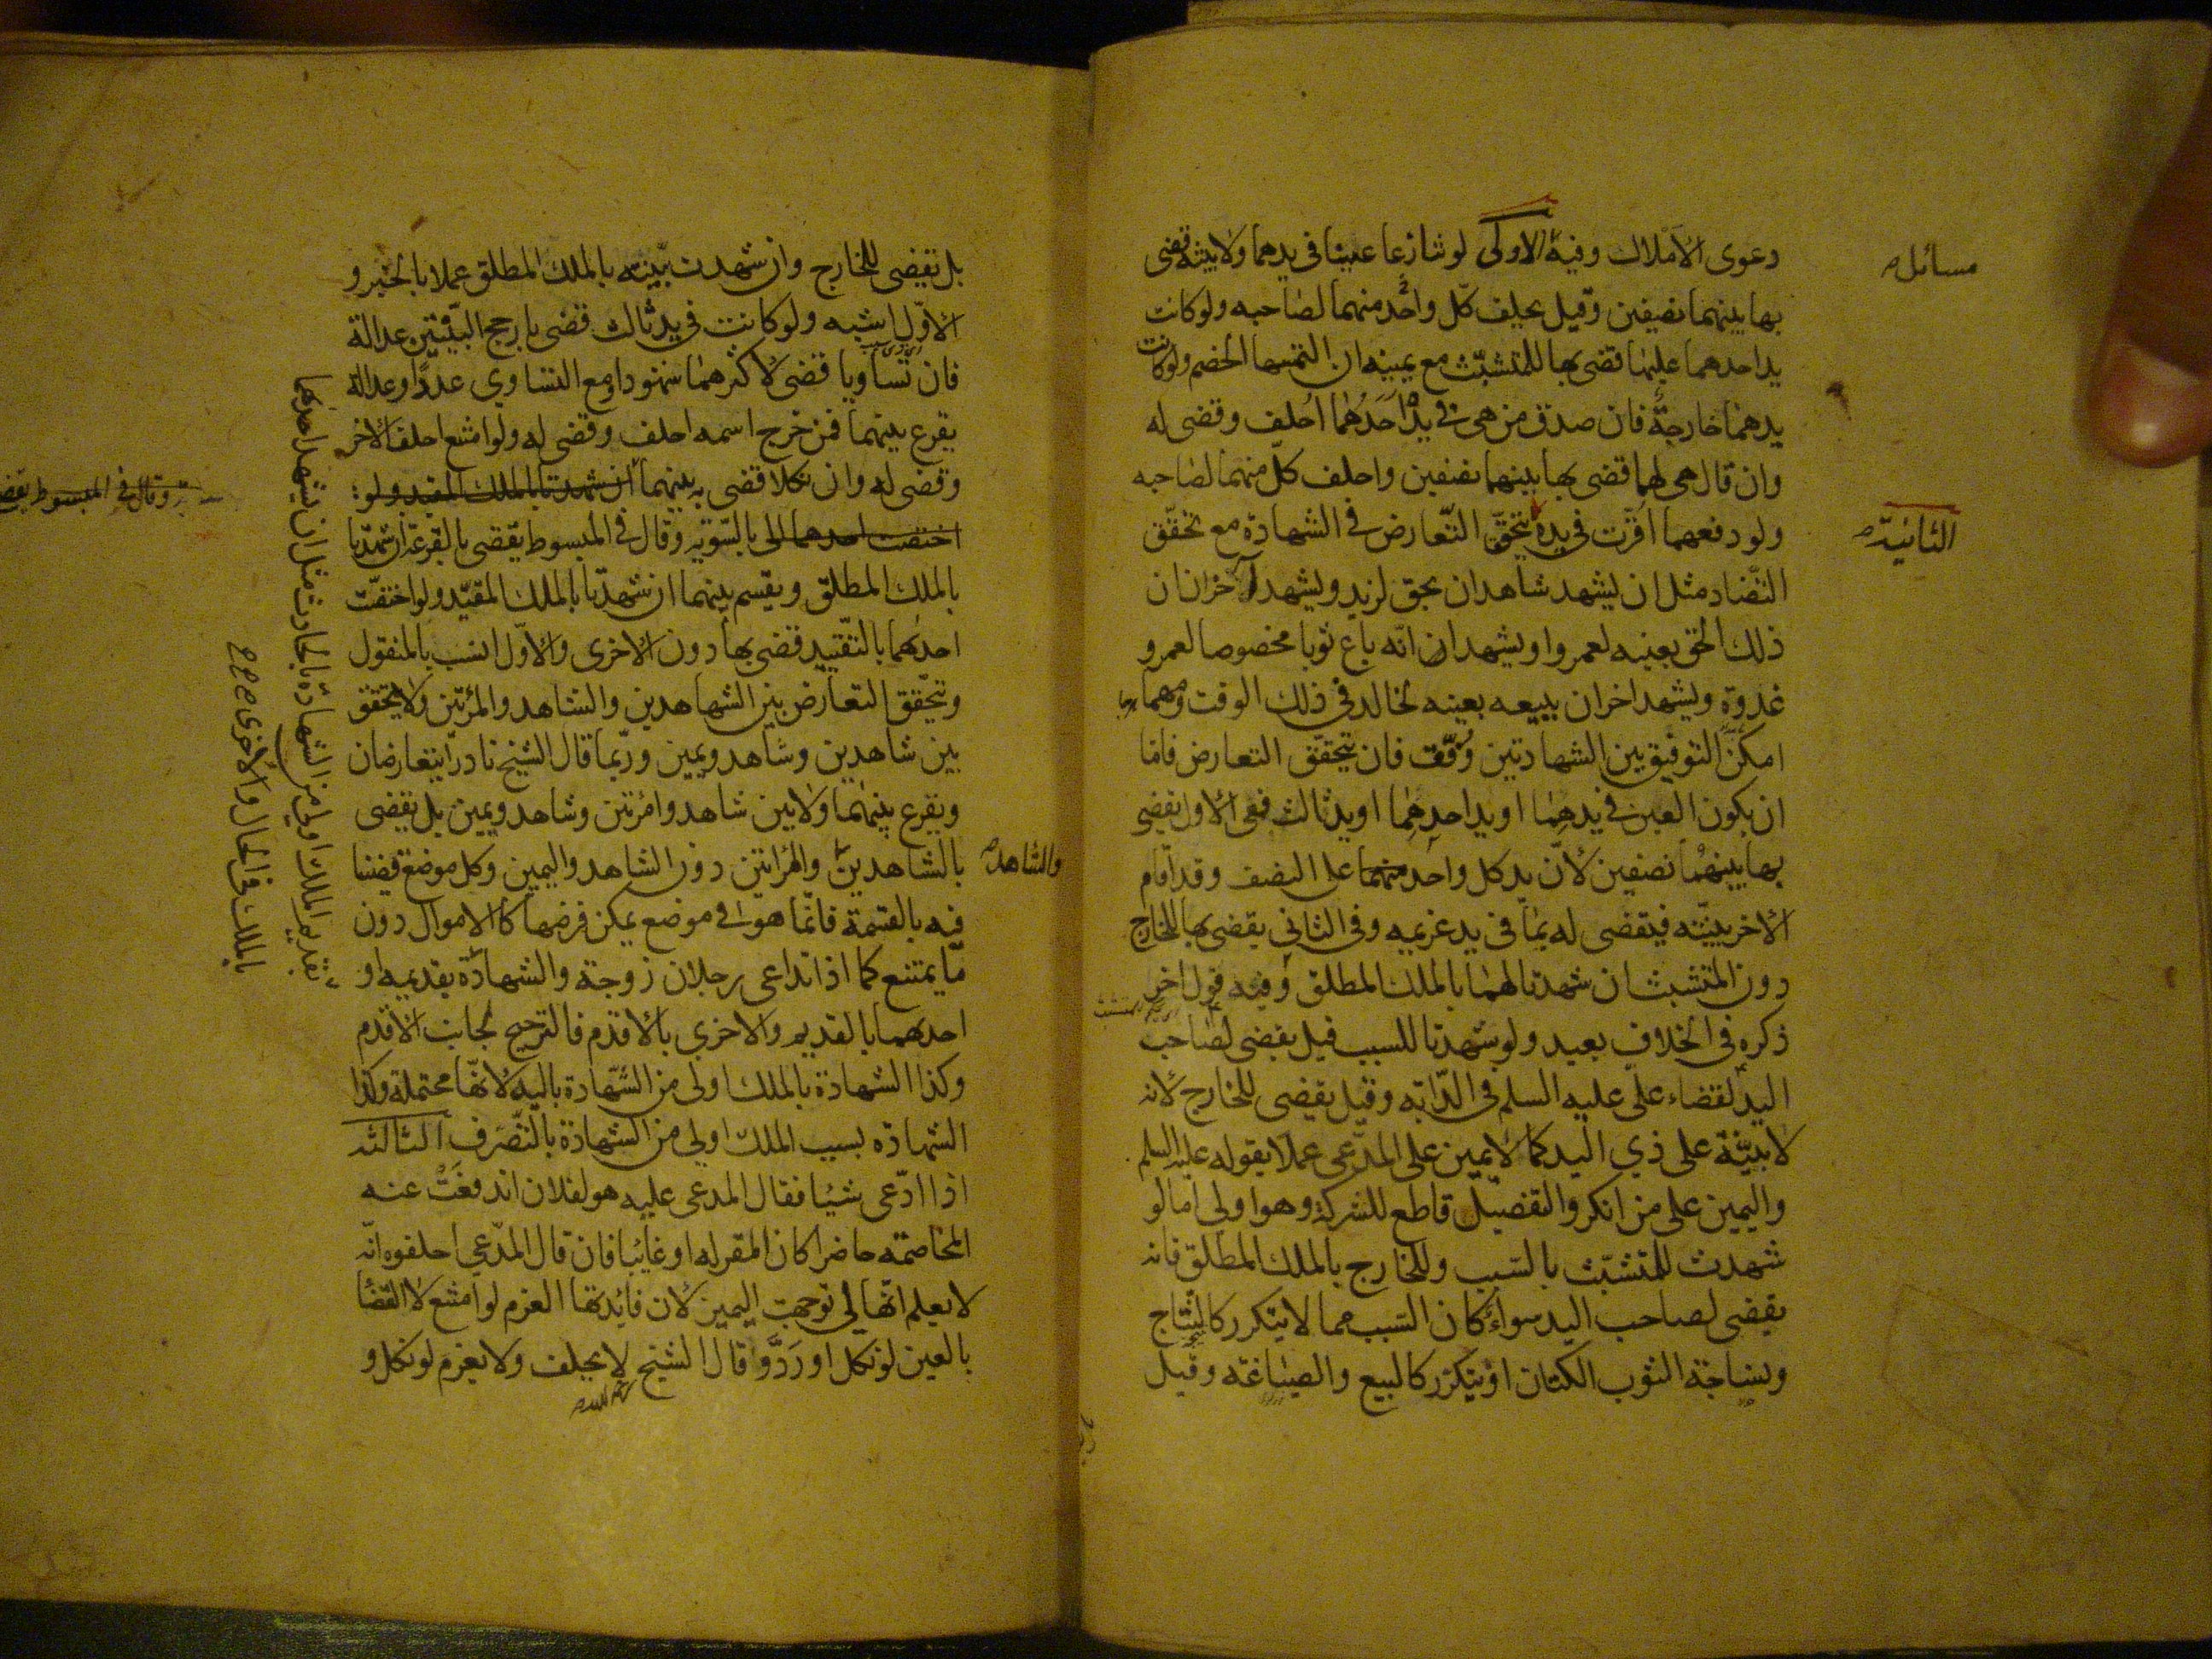 دعوى الاملاك وفيه الاولى لو تنازعا عينا في يدهما ولا بينة قضى
بها بينهما نصفين وقيل يحلف كل واحد منهما لصاحبه ولو كانت
يد احدهما عليها قضى بها للمتشبث مع يمينه ان التمسها الخصم ولو كانت
يدهما خارجة فان صدق من هى في يده احدهما احلف وقضى له
وان قال هى لهما قضى بها بينهما نصفين واحلف كل منهما لصاحبه
ولو دفعهما اقرت في يده يتحقق التعارض في الشهادة مع تحقق
التضاد مثل ان يشهد شاهدان بحق لزيد ويشهد آخران ان
ذلك الحق بعينه لعمرو او يشهدان انه باع ثوبا مخصوصا لعمرو
غدوة ويشهد اخران ببيعه بعينه لخالد في ذلك الوقت ومهما
امكن التوفيق بين الشهادتين وفق فان تحقق التعارض فاما
ان يكون العين في يدهما او يد احدهما او يد ثالث ففى الاول يقضى
بها بينهما نصفين لان يد كل واحد منهما على النصف وقد اقام
الاخر بينته فيقضى له بما في يد غريمه وفى الثاني يقضى بها للخارج
دون المتشبث ان شهدتا لهما بالملك المطلق وفيه قول اخر
ذكره في الخلاف بعيد ولو شهدتا للسبب قيل يقضى لصاحب
اليد لقضاء على عليه السلم في الدابة وقيل يقضى للخارج لانه
لا بينة على ذي اليد كما لا يمين على المدعى عملا بقوله عليه السلم
واليمين على من انكر والتفصيل قاطع للشركة وهو اولى اما لو
شهدت للمتشبث بالسبب وللخارج بالملك المطلق فانه
يقضى لصاحب اليد سواء كان السبب مما لا يتكرر كالنتاج
ونساجة الثوب الكتان او يتكرر كالبيع والصياغة وقيل
مسائل
الثانية
بل يقضى للخارج وان شهدت بينته بالملك المطلق عملا بالخبر و
الاول اشبه ولو كانت في يد ثالث قضى بارجح البينتين عدالة
فان تساويا قضى لاكثرهما شهودا ومع التساوي عددا وعدالة
يقرع بينهما فمن خرج اسمه احلف وقضى له ولو امتنع احلف الاخر
وقضى له وان نكلا قضى به بينهما ان شهدتا بالملك المقيد ولو
اختصت احدهما الى بالسوية وقال في المبسوط يقضى بالقرعة ان شهدتا
بالملك المطلق ويقسم بينهما ان شهدتا بالملك المقيد ولو اختصت
احدهما بالتقييد قضى بها دون الاخرى والاول انسب بالمنقول
وتحقق التعارض بين الشهاهدين والشاهد والمرئتين ولا يتحقق
بين شاهدين وشاهد ويمين وربما قال الشيخ نادرا يتعارضان
ويقرع بينهما ولا بين شاهد وامرئتين وشاهد ويمين بل يقضى
بالشاهدين والمراتين دون الشاهد واليمين وكل موضع قضينا
فيه بالقسمة فانما هو في موضع يمكن فرضها كالاموال دون
ما يمتنع كما اذا تداعى رجلان زوجة والشهادة بقديمه او
احدهما بالقديم والاخرى بالاقدم فالترجيح لجانب الاقدم
وكذا الشهادة بالملك اولى من الشهادة باليد لانها محتملة وكذا
الشهادة بسبب الملك اولى من الشهادة بالتصرف الثالثة
اذا ادعى شيئا فقال المدعى عليه هو لفلان اندفعت عنه
المخاصمة حاضرا كان المقر له او غائبا فان قال المدعى احلفوه انه
لا يعلم انها لي توجهت اليمين لان فائدتها الغرم لو امتنع لا القضا
بالعين لو نكل او رد وقال الشيخ لا يحلف ولا يغرم لو نكل و
والشاهد
وقال في المبسوط يقضى
بتقديم الملك اولى من الشهادة بالحادث مثل ان يشهد احدهما
بالملك في الحال والاخرى